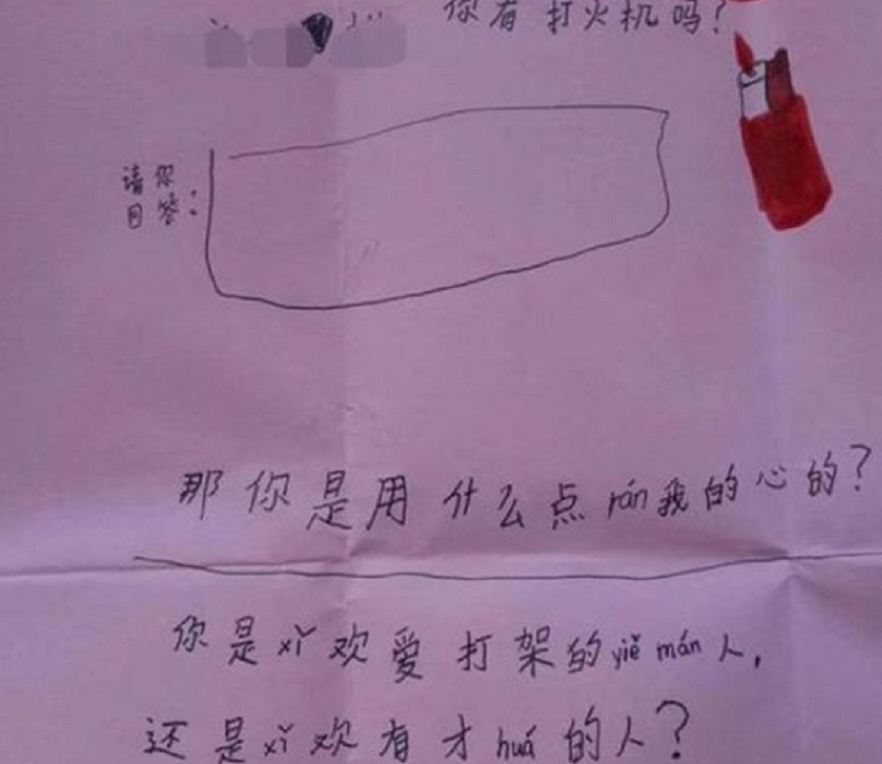 你有打火机吗?
请你
回答:
那你是用什么点rán我的心的?
你是xǐ欢爱打架的yiě mán人,
还是xǐ欢有才huá的人?